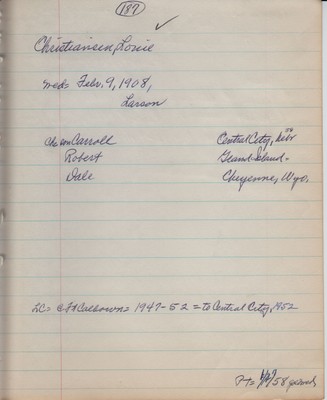 187
Christiansen, Louie
md= Febr. 9, 1908,
Larson
Carroll Central City, Nebr
Robert Grand Island.
Dale Cheyenne, Wyo.
LC= = 1947-52 = to Central City, 1952
58